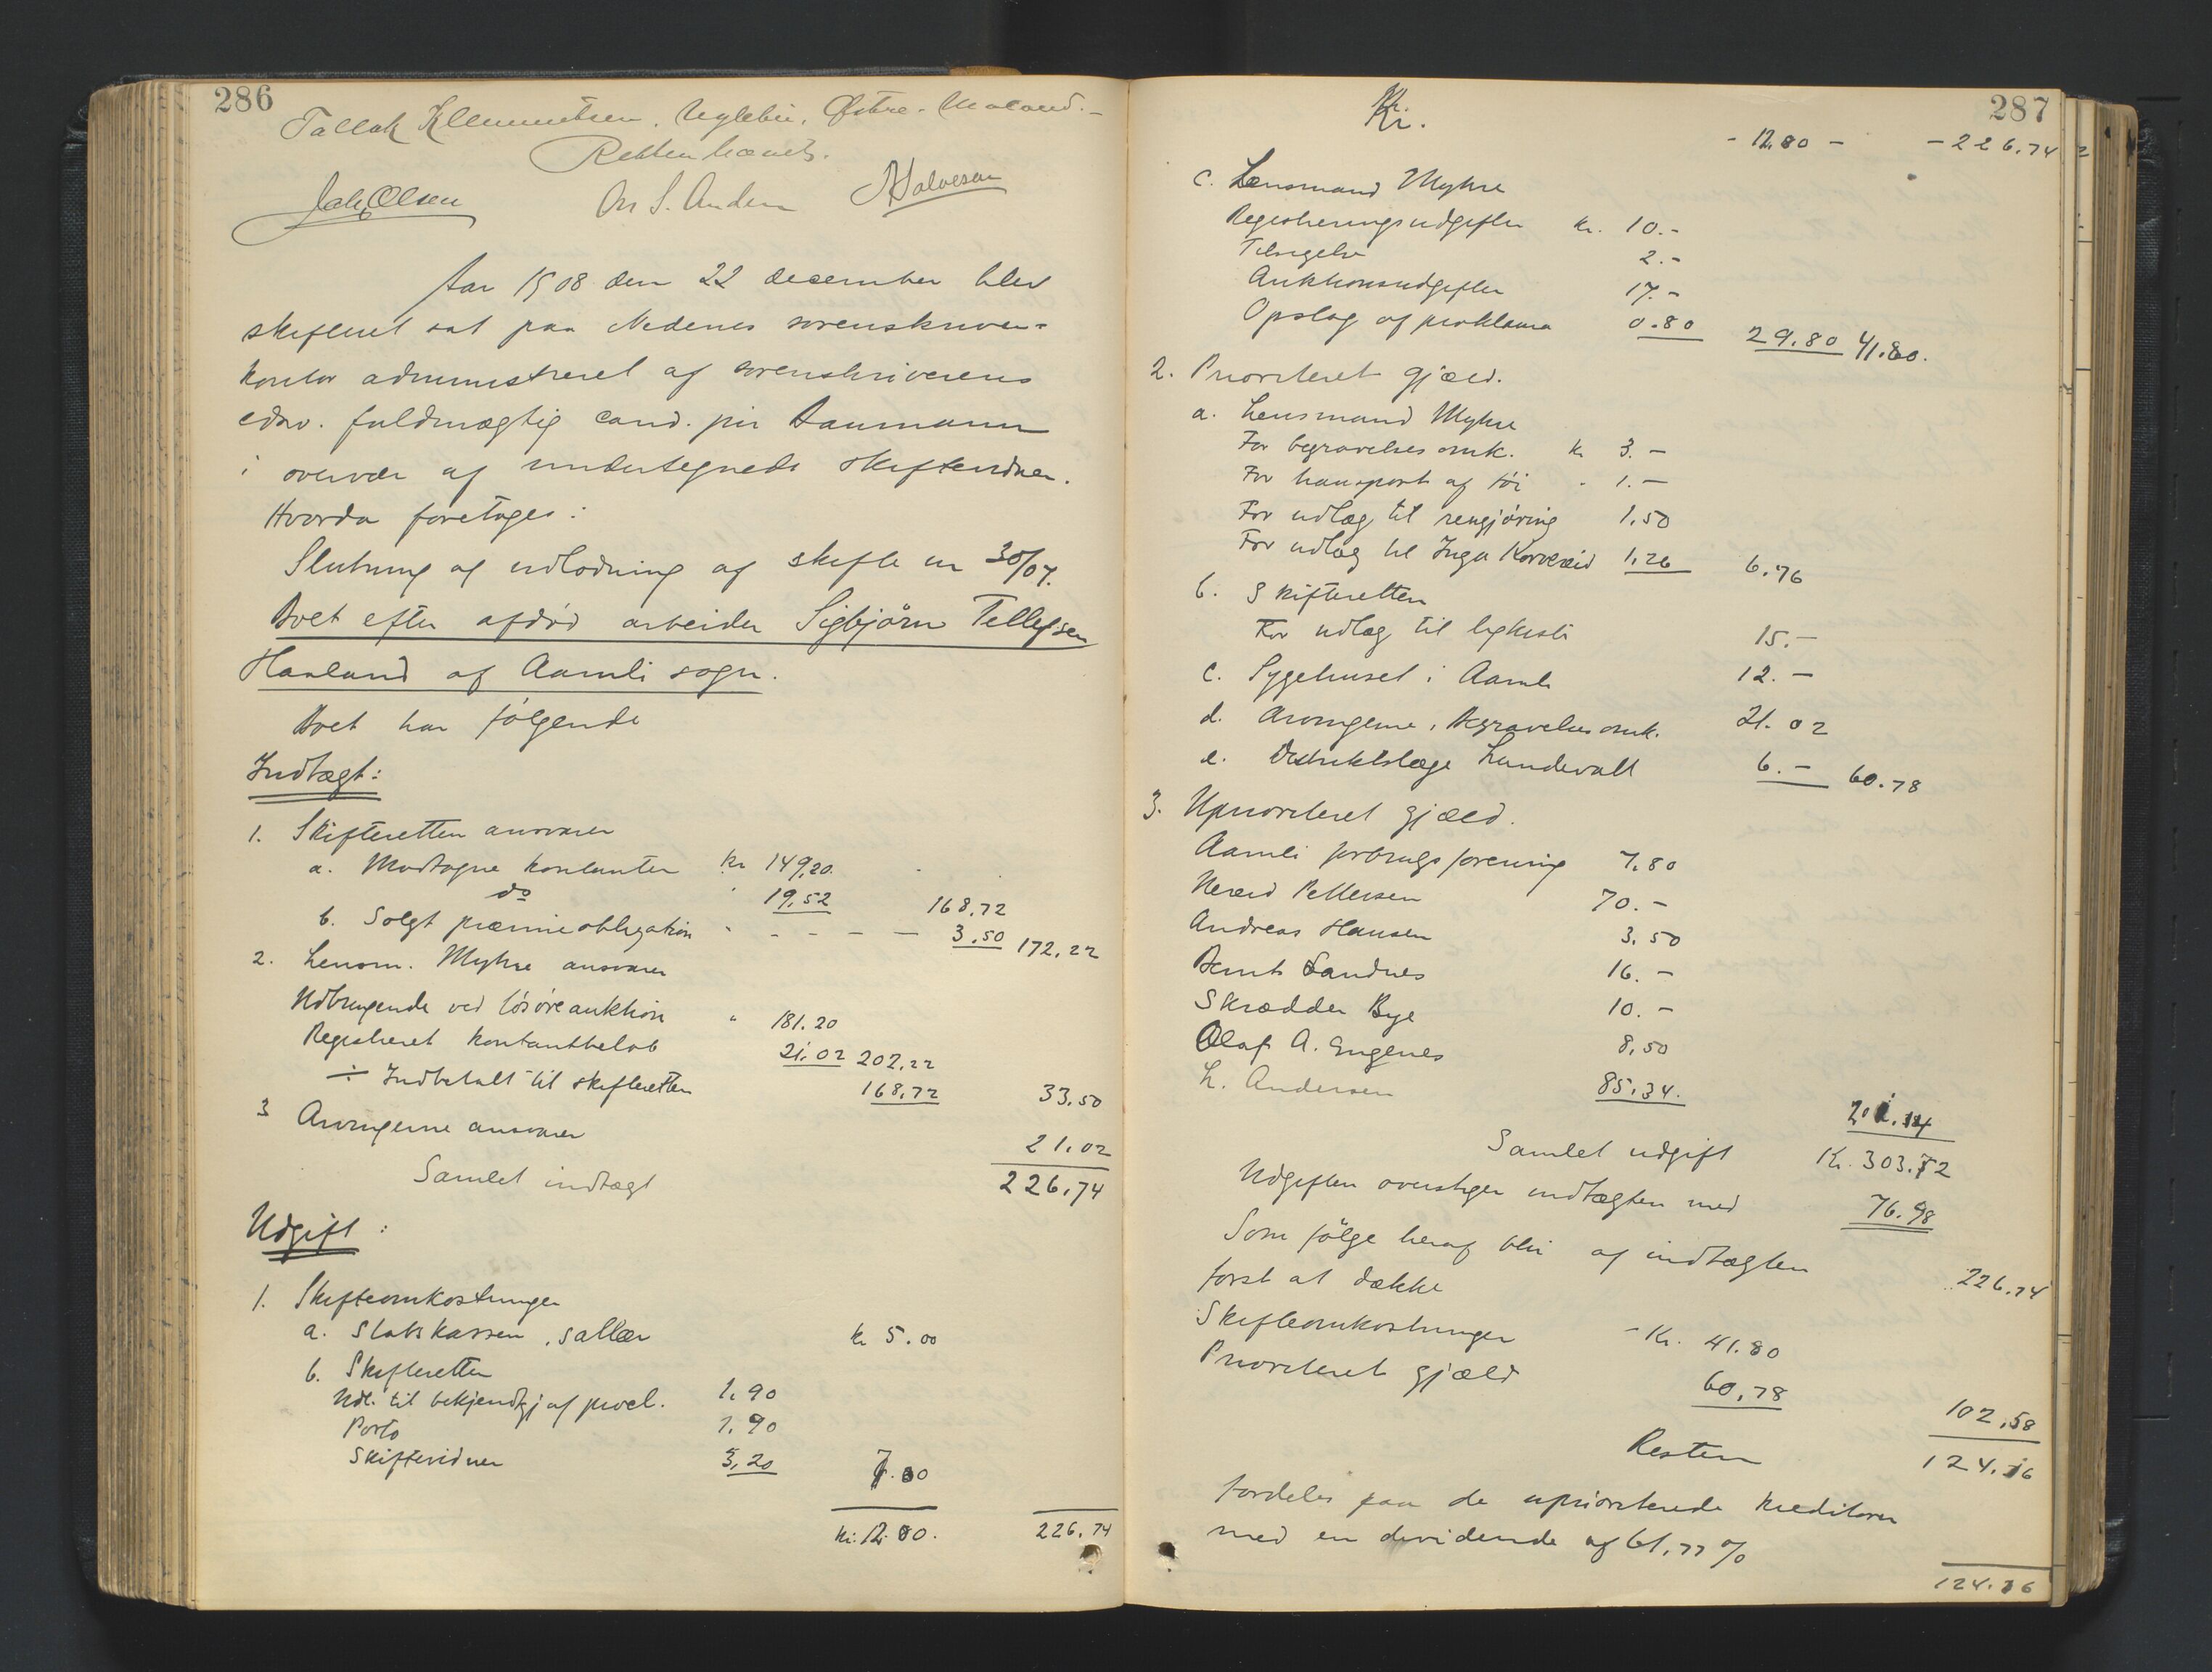 286
Tallak Klemmetsen, Myklebu, Østre-Moland.-
Retten hævet.
Jak. Olsen On S. Anders AHalvesen
Aar 1908 den 22 december blev
skifteret sat paa Nedenes sorenskriver-
kontor administreret af sorenskriverens
edsv. fuldmægtig cand. jur Baumann
i overvær af undertegnede skiftevidner.
Hvorda foretages:
Slutning af udlodning af skifte nr 30/07.
Boet efter afdød arbeider Sigbjørn Tellefsen
Haaland af Aamli sogn.
Boet har følgende
Indtægt:
1. Skifteretten ansvarer
a. Modtagne kontanter Kr 149,20.
do " 19,52 168,72
b. Solgt præmieobligation " - - - - 3,50 172,22
2. Lensm. Myhre ansvarer
Udbringende ved løsøreauktion " 181.20
Registreret kontantbeløb 21.02 202,22
÷ Indbetalt til skifteretten 168,72 33,50
3 Arvingerne ansvarer 21.02
Samlet indtægt 226,74
Udgift:
1. Skifteomkostninger
a. Statskassen, sallær kr 5.00
b. Skifteretten
Udl. til bekjendtgj af procl. 1,90
Porto 1,90
Skiftevidner 3,20 7.80
kr: 12.80. 226,74
287
Kr.
- 12.80 - - 226,74
c. Lensmand Myhre
Registreringsudgifter kr. 10.-
Tilsigelse 2.-
Auktionsudgifter 17.-
Opslag af proklama 0.80 29,80 41.80.
2. Prioriteret gjæld.
a. Lensmand Myhre
For begravelsesomk. kr 3.-
For transport af tøi " 1.-
For udlæg til rengjøring 1,50
For udlæg til Inga Korvereid 1,26 6,76
b. Skifteretten
For udlæg til ligkiste 15.-
c. Sygehuset i Aamli 12.-
d. Arvingerne, Begravelsesomk. 21.02
e. Distriktslæge Lundevall 6.- 60.78
3. Uprioriteret gjæld.
Aamli forbrugsforening 7,80
Neræid Pettersen 70.-
Andreas Hansen 3,50
Bernt Sandnes 16.-
Skrædder Bye 10.-
Olaf A. Engenes 8,50
L. Andersen 85,34.
201.14
Samlet udgift Kr. 303.72
Udgiften overstiger indtægten med 76.98
Som følge heraf blir af indtægten 226,74
først at dække
Skifteomkostninger - Kr. 41.80
Prioriteret gjæld 60,78
102,58
Resten 124.16
fordeles paa de uprioriterede kreditorer
med en dividende af 61,77 %
124.16